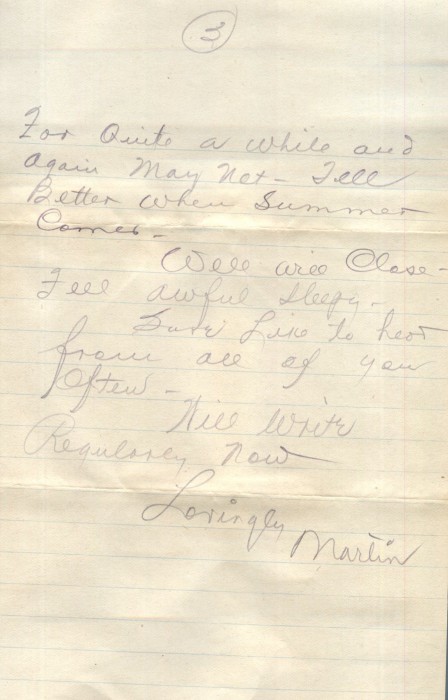 3
For Quite a while and
again May Not - Tell
Better when Summer
Comes -
Well will Close -
Feel awful sleepy -
Sure Like to hear
from all of you
Often -
Will Write
Regularly now
Lovingly
Martin